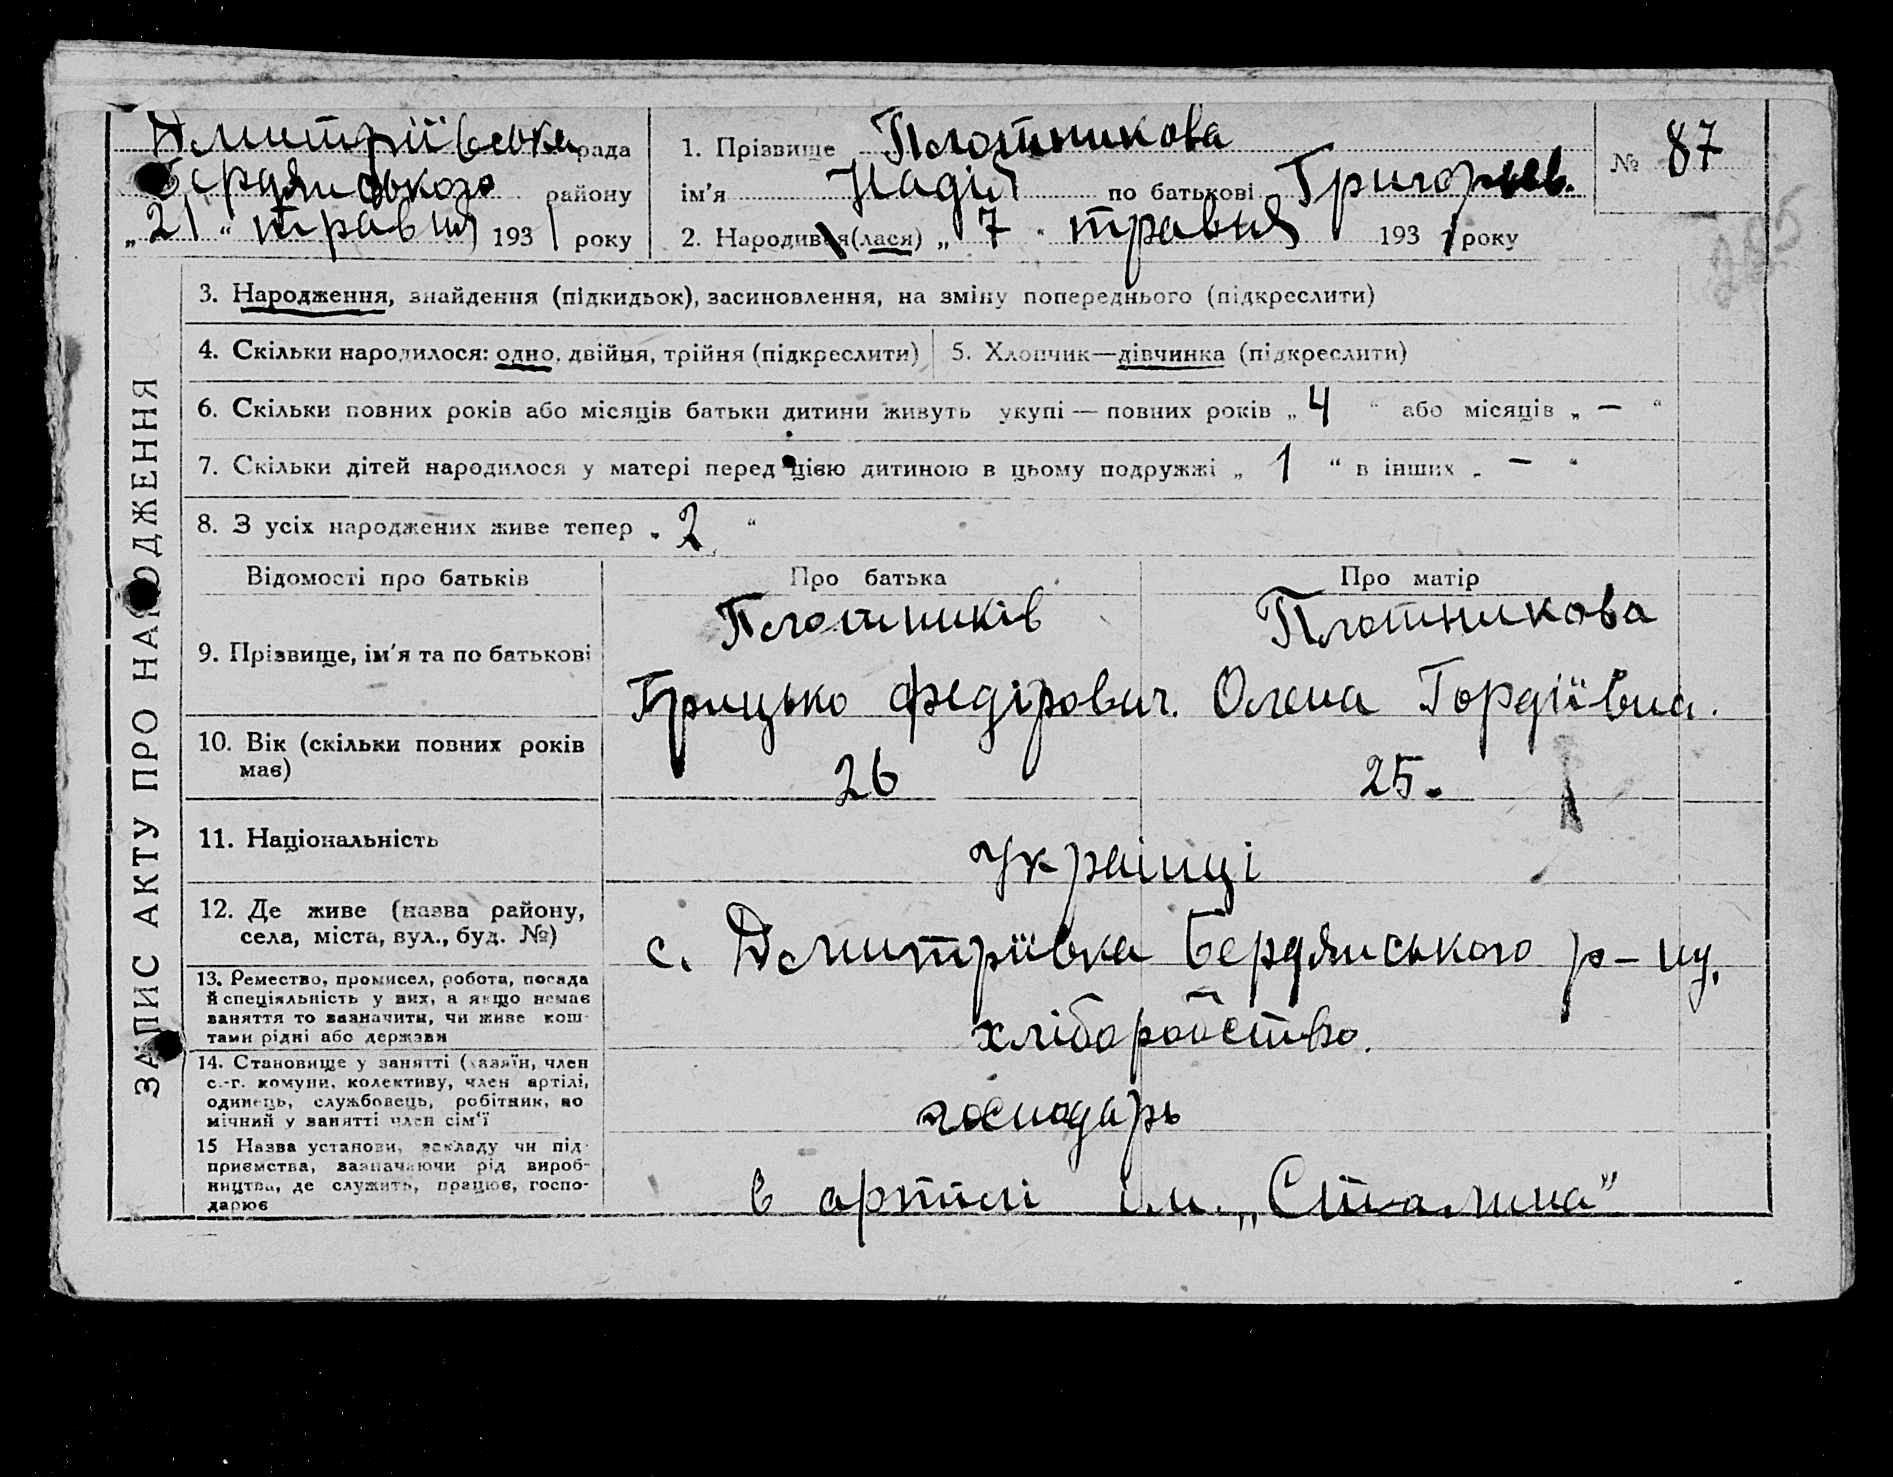 Дмитріївська рада
Бердянського району
„ 21 “ травня 1931 року
1. Прізвище Плотникова
ім'я Надія по батькові Григорьев.
2. Народився(лася) „ 7 “ травня 1931 року
№ 87
ЗАПИС АКТУ ПРО НАРОДЖЕННЯ
3. Народження, знайдення (підкидьок), засиновлення, на зміну попереднього (підкреслити)
4. Скільки народилося: одно, двійня, трійня (підкреслити)
5. Хлопчик—дівчинка (підкреслити)
6. Скільки повних років або місяців батьки дитини живуть укупі — повних років „ 4 “ або місяців „ — “
7. Скільки дітей народилося у матері перед цією дитиною в цьому подружжі „ 1 “ в інших „ — “
8. З усіх народжених живе тепер „ 2 “
Відомості про батьків Про батька Про матір
9. Прізвище, ім'я та по батькові
Плотників
Грицько Федірович.
Плотникова
Олена Гордіївна.
10. Вік (скільки повних років
має)
26
25.
11. Національність
Українці
12. Де живе (назва району,
села, міста, вул., буд. №)
с. Дмитріївка Бердянського р-ну.
13. Ремество, промисел, робота, посада
й спеціяльність у них, а якщо немає
заняття то зазначити, чи живе кош-
тами рідні або держави
хліборобство.
14. Становище у занятті (хазяїн, член
с.-г. комуни, колективу, член артілі,
одинець, службовець, робітник, по
мічний у занятті член сім'ї
господарь
15 Назва установи, закладу чи під-
приємства, зазначаючи рід вироб-
ництва, де служить, працює, госпо-
дарює
в артілі ім. „Сталина”